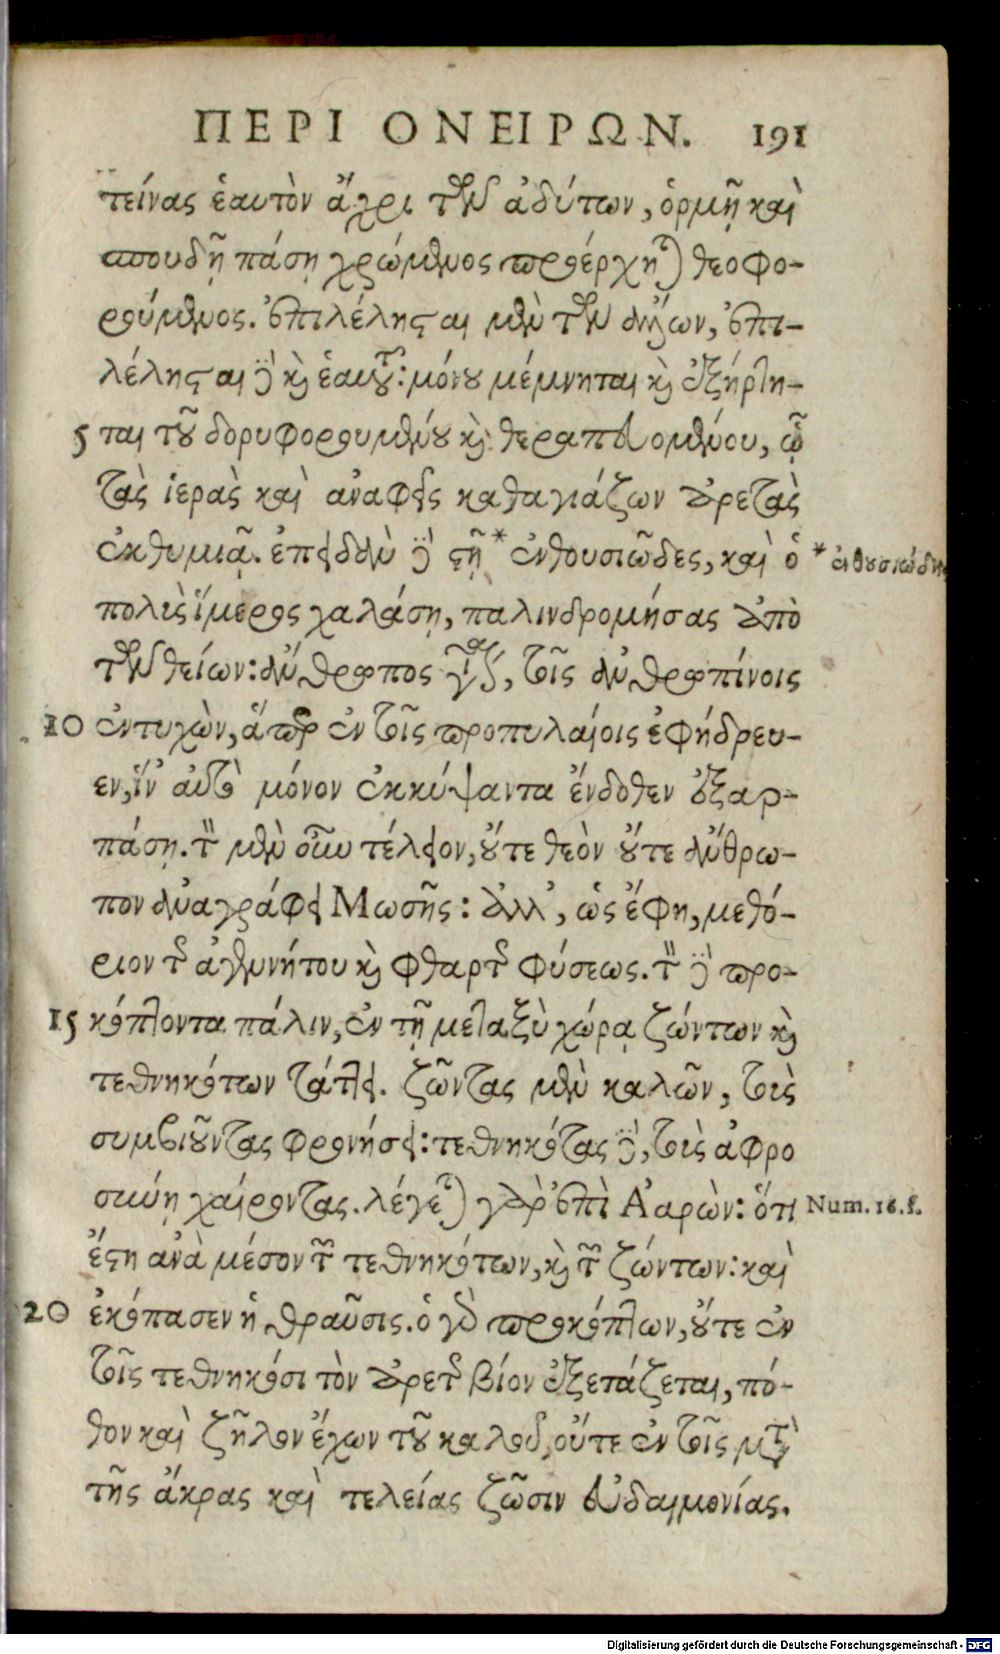 ΠΕΡΙ ΟΝΕΙΡΩΝ. 191
τείνας ἑαυτὸν ἄχρι τῶν ἀδύτων, ὁρμῇ καὶ
σπουδῇ πάσῃ χρώμενος προέρχηται θεοφο-
ρούμενος. ἐπιλέλησται μὲν τῶν ἄλλων, ἐπι-
λέλησται δὲ καὶ ἑαυτοῦ: μόνου μέμνηται καὶ ἐξήρτη-
5 ται τοῦ δορυφορουμένου καὶ θεραπευομένου, ᾧ
τὰς ἱερὰς καὶ ἀναφεῖς καθαγιάζων ἀρετὰς
ἐκθυμιᾷ. ἐπειδὰν δὲ στῇ * ἐνθουσιῶδες, καὶ ὁ * ἐνθουσιώδης
πολὺς ἵμερος χαλάσῃ, παλινδρομήσας ἀπὸ
τῶν θείων: ἄνθρωπος γίνεται, τοῖς ἀνθρωπίνοις
10 ἐντυχὼν, ἅπερ ἐν τοῖς προπυλαίοις ἐφήδρευ-
εν, ἵν' αὐτὸ μόνον ἐκκύψαντα ἔνδοθεν ἐξαρ-
πάσῃ. τὸν μὲν οὖν τέλειον, οὔτε θεὸν οὔτε ἄνθρω-
πον ἀναγράφει Μωσῆς: ἀλλ', ὡς ἔφη, μεθό-
ριον τῆς ἀγενήτου καὶ φθαρτῆς φύσεως. τὸν δὲ προ-
15 κόπτοντα πάλιν, ἐν τῇ μεταξὺ χώρᾳ ζώντων καὶ
τεθνηκότων τάττει. ζῶντας μὲν καλῶν, τοὺς
συμβιοῦντας φρονήσει: τεθνηκότας δὲ, τοὺς ἀφρο
σύνῃ χαίροντας. λέγεται γὰρ ἐπὶ Ἀαρὼν: ὅτι Num. 16. f.
ἔστη ἀνὰ μέσον τῶν τεθνηκότων, καὶ τῶν ζώντων: καὶ
20 ἐκόπασεν ἡ θραῦσις. ὁ γὰρ προκόπτων, οὔτε ἐν
τοῖς τεθνηκόσι τὸν ἀρετῆς βίον ἐξετάζεται, πό-
θον καὶ ζῆλον ἔχων τοῦ καλοῦ, οὔτε ἐν τοῖς μετὰ
τῆς ἄκρας καὶ τελείας ζῶσιν εὐδαιμονίας.
Digitalisierung gefördert durch die Deutsche Forschungsgemeinschaft - DFG